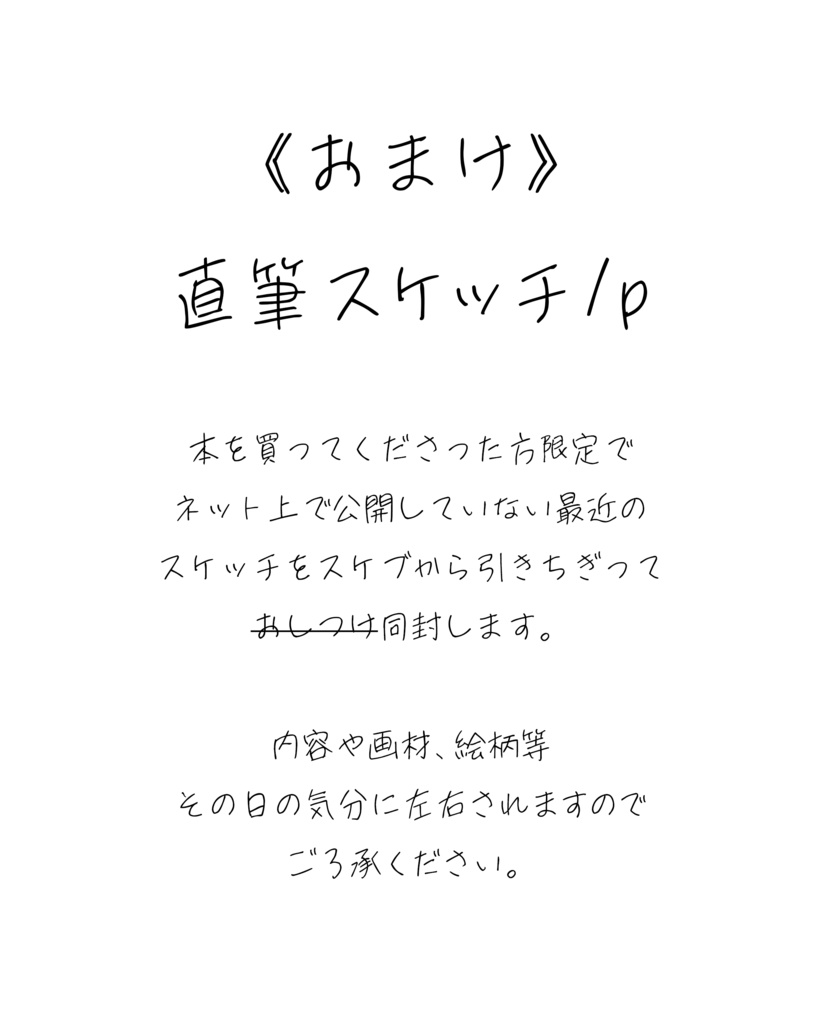 《おまけ》
直筆スケッチ/p
本を買ってくださった方限定で
ネット上で公開していない最近の
スケッチをスケブから引きちぎって
おしつけ同封します。
内容や画材、絵柄等
その日の気分に左右されますので
ご了承ください。